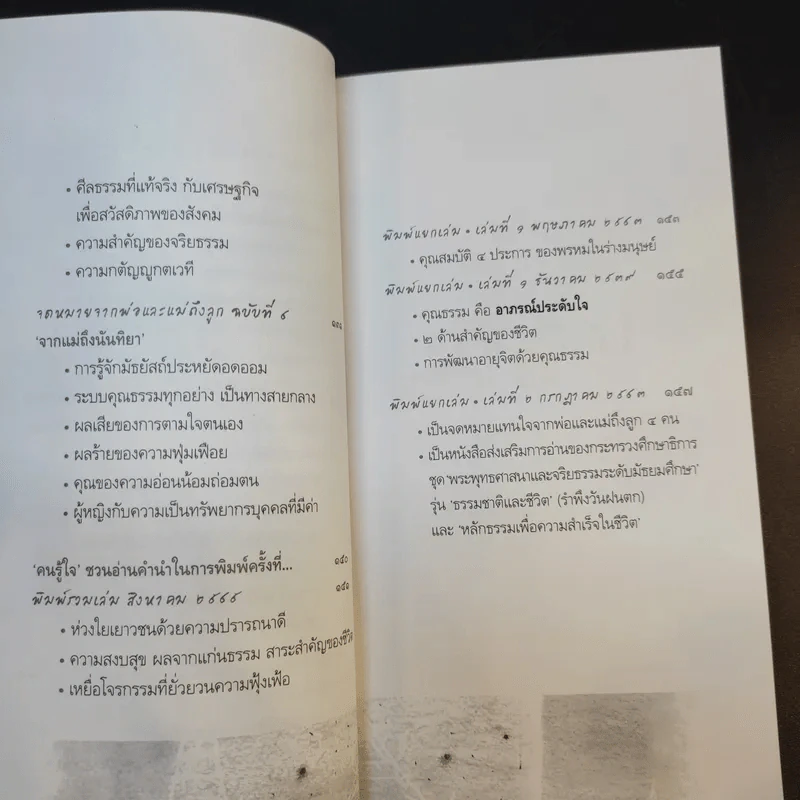 • ศีลธรรมที่แท้จริง กับเศรษฐกิจ
เพื่อสวัสดิภาพของสังคม
• ความสำคัญของจริยธรรม
• ความกตัญญูกตเวที
จดหมายจากพ่อและแม่ถึงลูก ฉบับที่ ๔
'จากแม่ถึงนันทิยา'
• การรู้จักมัธยัสถ์ประหยัดอดออม
• ระบบคุณธรรมทุกอย่าง เป็นทางสายกลาง
• ผลเสียของการตามใจตนเอง
• ผลร้ายของความฟุ่มเฟือย
• คุณของความอ่อนน้อมถ่อมตน
• ผู้หญิงกับความเป็นทรัพยากรบุคคลที่มีค่า
'คนรู้ใจ' ชวนอ่านคำนำในการพิมพ์ครั้งที่... ๑๕๐
พิมพ์รวมเล่ม สิงหาคม ๒๕๕๕ ๑๕๑
• ห่วงใยเยาวชนด้วยความปรารถนาดี
• ความสงบสุข ผลจากแก่นธรรม สาระสำคัญของชีวิต
• เหยื่อโจรกรรมที่ยั่วยวนความฟุ้งเฟ้อ
พิมพ์แยกเล่ม • เล่มที่ ๑ พฤษภาคม ๒๕๔๓ ๑๕๓
• คุณสมบัติ ๔ ประการ ของพรหมในร่างมนุษย์
พิมพ์แยกเล่ม • เล่มที่ ๑ ธันวาคม ๒๕๓๙ ๑๕๕
• คุณธรรม คือ อาภรณ์ประดับใจ
• ๒ ด้านสำคัญของชีวิต
• การพัฒนาอายุจิตด้วยคุณธรรม
พิมพ์แยกเล่ม • เล่มที่ ๒ กรกฎาคม ๒๕๔๓ ๑๕๗
• เป็นจดหมายแทนใจจากพ่อและแม่ถึงลูก ๔ คน
• เป็นหนังสือส่งเสริมการอ่านของกระทรวงศึกษาธิการ
ชุด 'พระพุทธศาสนาและจริยธรรมระดับมัธยมศึกษา'
รุ่น 'ธรรมชาติและชีวิต' (รำพึงวันฝนตก)
และ 'หลักธรรมเพื่อความสำเร็จในชีวิต'